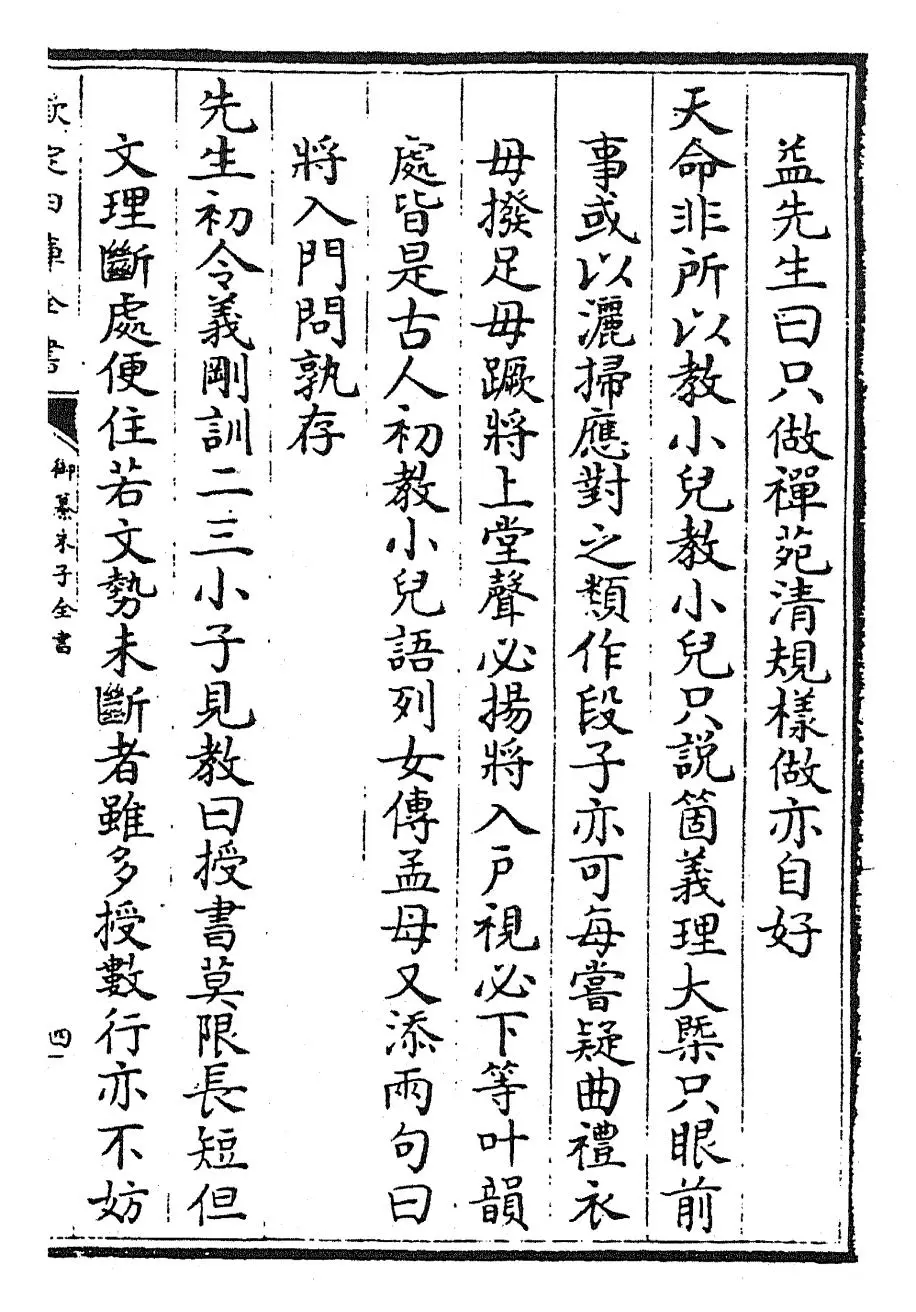 益先生曰只做禪苑清規樣做亦自好
天命非所以教小兒教小兒只説箇義理大槩只眼前
事或以灑掃應對之類作段子亦可每嘗疑曲禮衣
毋撥足毋蹶將上堂聲必揚將入戸視必下等叶韻
處皆是古人初教小兒語列女傳孟母又添兩句曰
將入門問孰存
先生初令義剛訓二三小子見教曰授書莫限長短但
文理斷處便住若文勢未斷者雖多授數行亦不妨
欽定四庫全書
御纂朱子全書
四